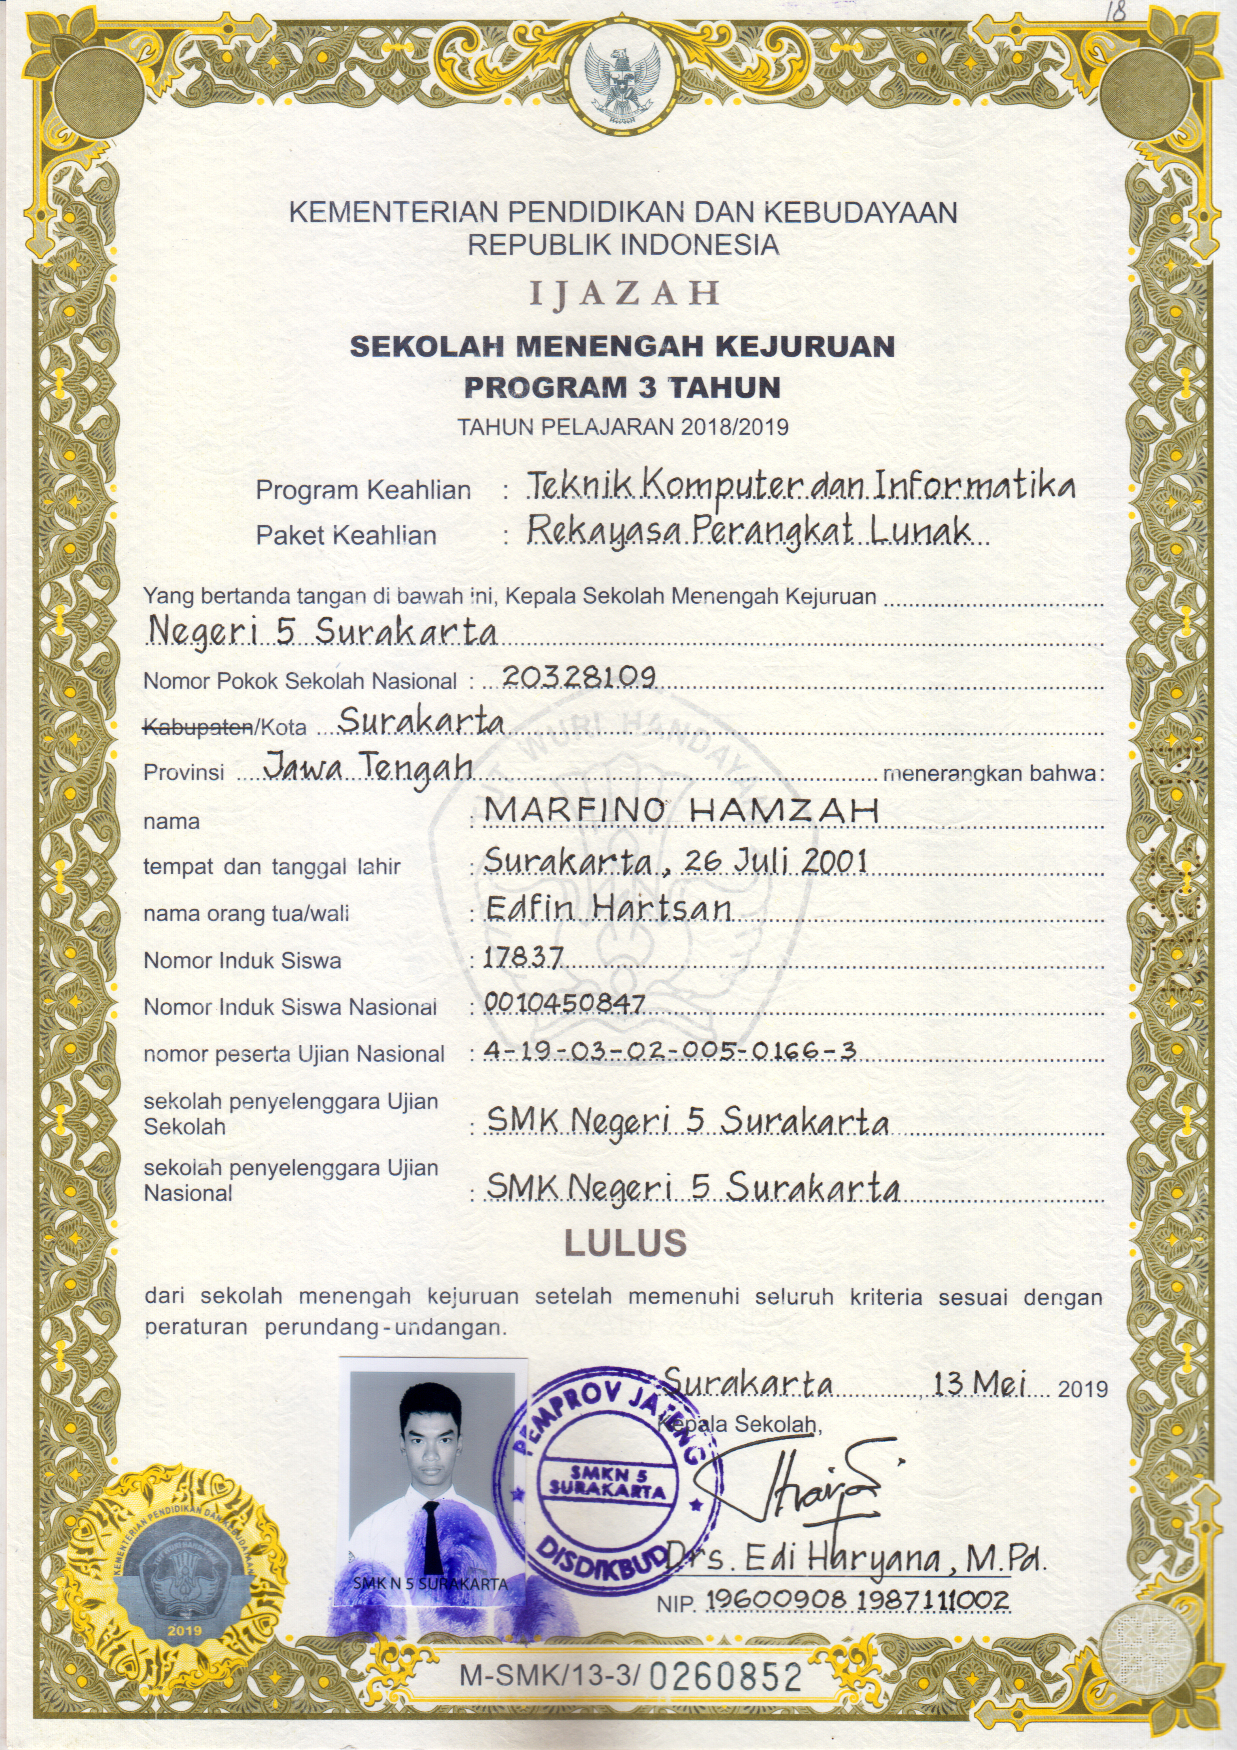 18
KEMENTERIAN PENDIDIKAN DAN KEBUDAYAAN
REPUBLIK INDONESIA
IJAZAH
SEKOLAH MENENGAH KEJURUAN
PROGRAM 3 TAHUN
TAHUN PELAJARAN 2018/2019
Program Keahlian : Teknik Komputer dan Informatika
Paket Keahlian : Rekayasa Perangkat Lunak
Yang bertanda tangan di bawah ini, Kepala Sekolah Menengah Kejuruan
Negeri 5 Surakarta
Nomor Pokok Sekolah Nasional : 20328109
Kabupaten/Kota Surakarta
Provinsi Jawa Tengah menerangkan bahwa:
nama : MARFINO HAMZAH
tempat dan tanggal lahir : Surakarta, 26 Juli 2001
nama orang tua/wali : Edfin Hartsan
Nomor Induk Siswa : 17837
Nomor Induk Siswa Nasional : 0010450847
nomor peserta Ujian Nasional : 4-19-03-02-005-0166-3
sekolah penyelenggara Ujian
Sekolah : SMK Negeri 5 Surakarta
sekolah penyelenggara Ujian
Nasional : SMK Negeri 5 Surakarta
LULUS
dari sekolah menengah kejuruan setelah memenuhi seluruh kriteria sesuai dengan
peraturan perundang-undangan.
Surakarta, 13 Mei 2019
Kepala Sekolah,
PEMPROV JATENG
SMKN 5
SURAKARTA
DISDIKBUD
Drs. Edi Haryana, M.Pd.
NIP. 19600908 1987111002
SMK N 5 SURAKARTA
KEMENTERIAN PENDIDIKAN DAN KEBUDAYAAN
TUT WURI HANDAYANI
2019
M-SMK/13-3/ 0260852